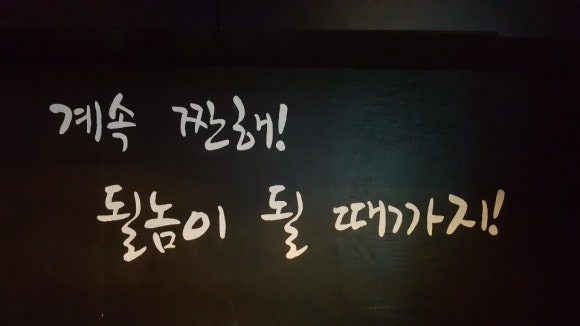 계속 짠해!
될놈이 될 때까지!